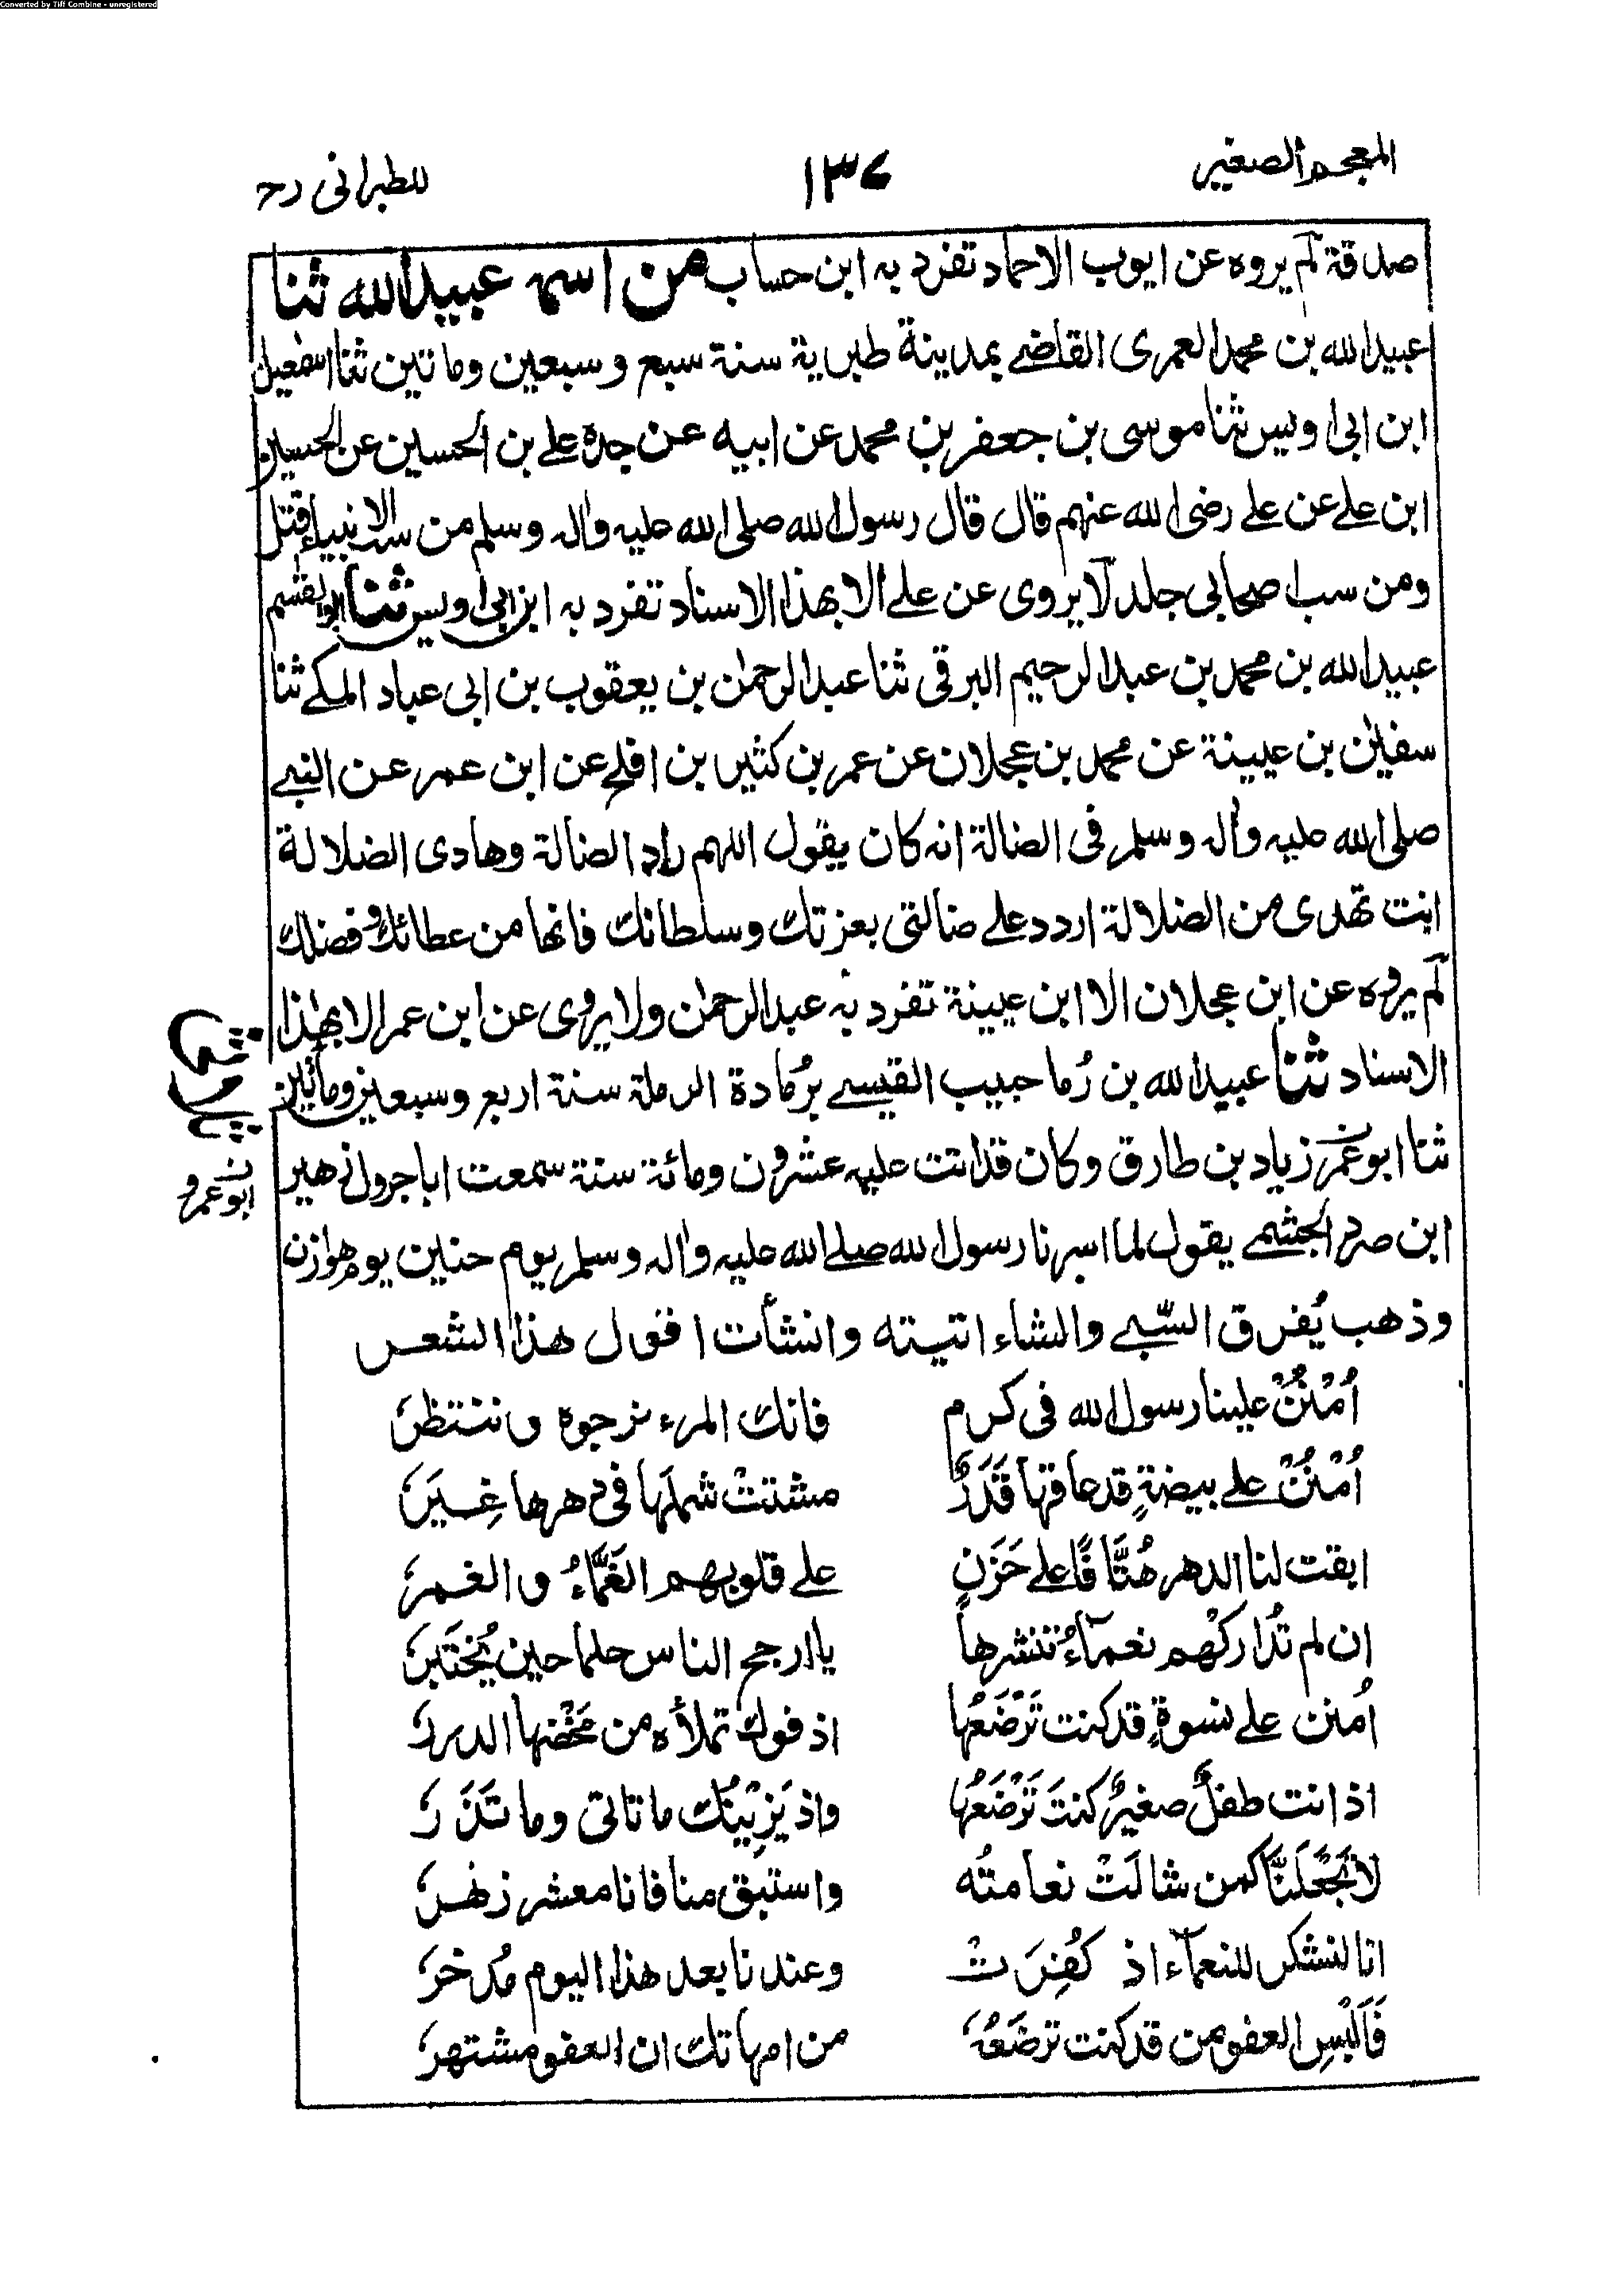 Converted by Tiff Combine - unregistered
المعجم الصغير ١٣٧ للطبرانی رح
صدقة لم يروه عن ايوب الاحماد تفرد به ابن حساب من اسمه عبيدالله ثنا
عبيدالله بن محمد العمری القاضے بمدينة طبرية سنة سبع و سبعين وماتين ثنا اسمٰعيل
ابن ابی اويس ثنا موسی بن جعفر بن محمد عن ابيه عن جده علے بن الحسين عن الحسين
ابن علے عن علے رضی الله عنهم قال قال رسول الله صلی الله عليه واٰله وسلم من سب الانبياء قتل
ومن سب اصحابی جلد لا يروی عن علے الا بهذا الاسناد تفرد به ابن ابی اويس ثنا ابوالقٰسم
عبيدالله بن محمد بن عبدالرحيم البرقی ثنا عبدالرحمٰن بن يعقوب بن ابی عباد المکے ثنا
سفيٰن بن عيينة عن محمد بن عجلان عن عمر بن کثير بن افلح عن ابن عمر عن النبے
صلی الله عليه واٰله وسلم فی الضالة انه کان يقول اللهم راد الضالة وهادی الضلالة
انت تهدی من الضلالة اردد علے ضالتی بعزتك وسلطانك فانها من عطائك وفضلك
لم يروه عن ابن عجلان الا ابن عيينة تفرد به عبدالرحمٰن ولا يروی عن ابن عمر الا بهٰذا
الاسناد ثنا عبيدالله بن رُماحبيب القيسے برُمادة الرملة سنة اربع وسبعين ومأتين
ثنا ابوعمر زياد بن طارق وکان قد اتت عليه عشرون ومائة سنة سمعت اباجرول زهير
ن
ابوعمرو
ابن صرد الجشمے يقول لما اسرنا رسول الله صلے الله عليه واٰله وسلم يوم حنين يوم هوازن
وذهب يُفرق السّبے والشاء اتيته وانشأت اقول هذا الشعر
اُمْنُنْ علينا رسول الله فی کرم فانك المرء نرجوه وننتظرُ
اُمْنُنْ علے بيضةٍ قد عاقها قَدَرٌ مشتتْ شملَها فی دهرها غِيَرُ
ابقت لنا الدهر هُتَّافًا علے حَزَنٍ علے قلوبهم الغَمَّاءُ والغمرُ
ان لم تُدارکْهم نعمآءُ تنشرها يا ارجح الناس حلما حين يُختَبَرُ
اُمنن علے نسوةٍ قد کنت تَرْضَعُها اذ فوك تملأه من مَحْضها الدررُ
اذ انت طفلٌ صغيرٌ کنتَ تَرْضَعُها واذ يَزِيْنُك ما تاتی وما تَذَرُ
لا تَجْعَلَنَّا کمن شالَتْ نعامتُه واستبق منا فانا معشر زهرُ
انا لنشکر للنعمآء اذ کُفِرَتْ وعندنا بعد هذا اليوم مُدخرُ
فَاَلْبِسِ العفو من قد کنت ترضَعُهُ من امهاتك ان العفو مشتهرُ